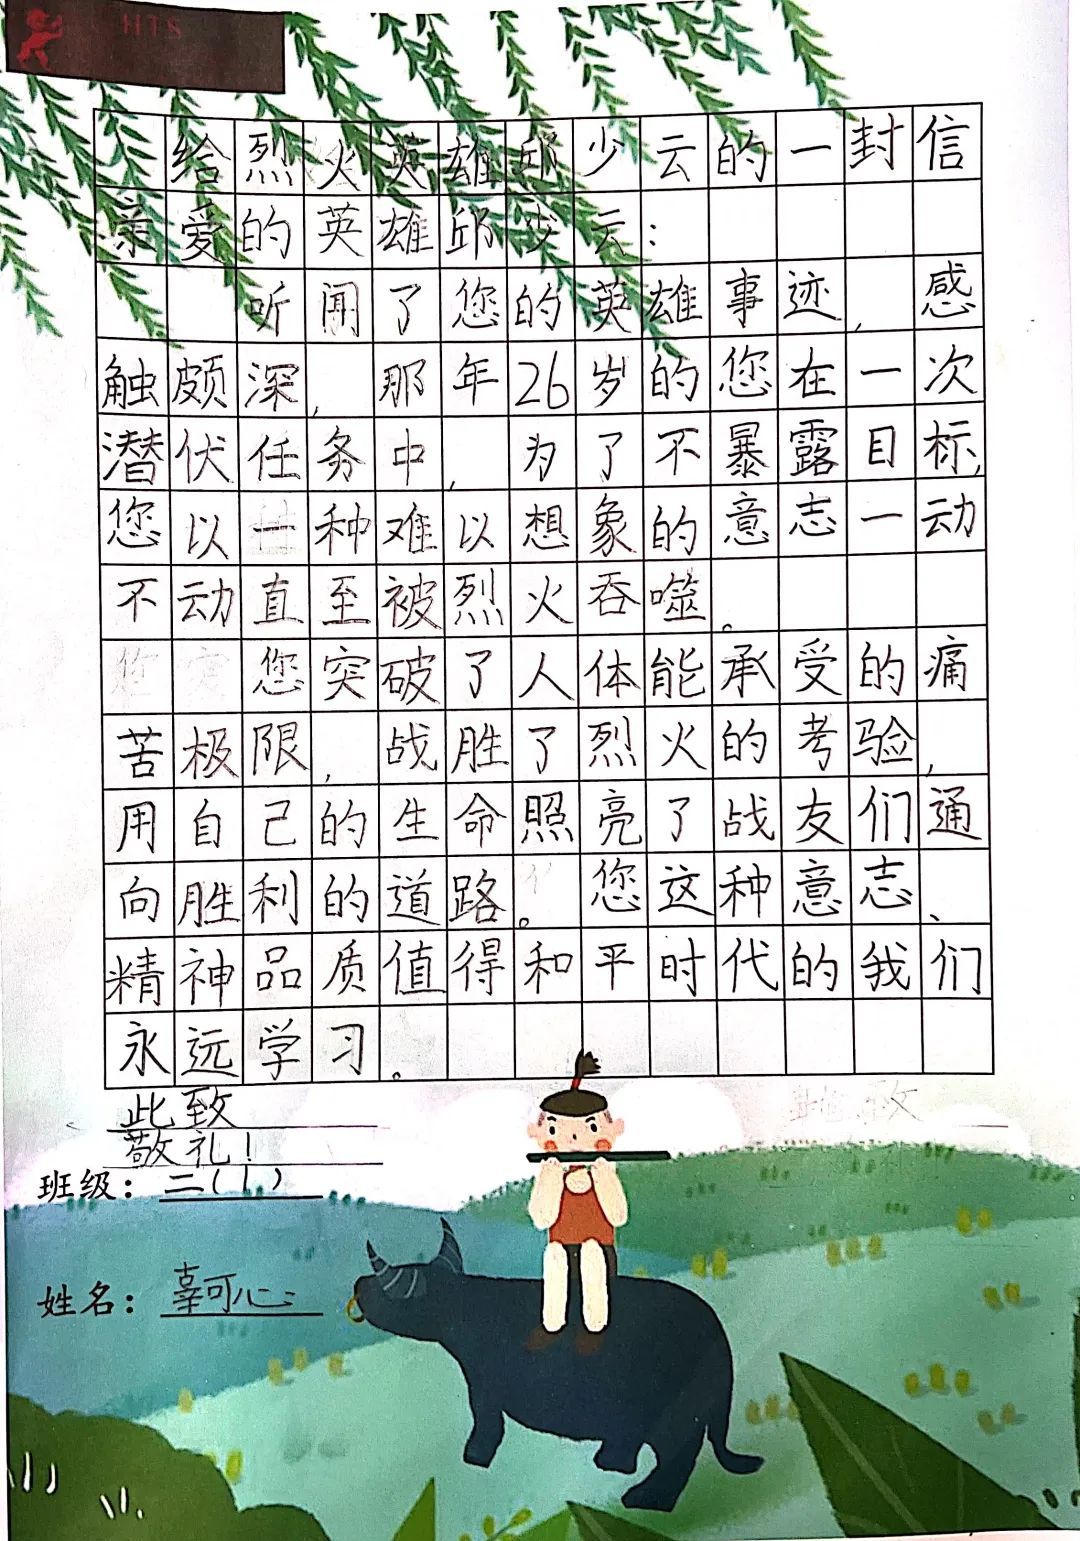 给烈火英雄邱少云的一封信
亲爱的英雄邱少云：
听闻了您的英雄事迹，感
触颇深，那年26岁的您在一次
潜伏任务中，为了不暴露目标，
您以一种难以想象的意志一动
不动直至被烈火吞噬。
您突破了人体能承受的痛
苦极限，战胜了烈火的考验，
用自己的生命照亮了战友们通
向胜利的道路。您这种意志、
精神品质值得和平时代的我们
永远学习。
此致
敬礼！
班级：二（1）
姓名：辜可心